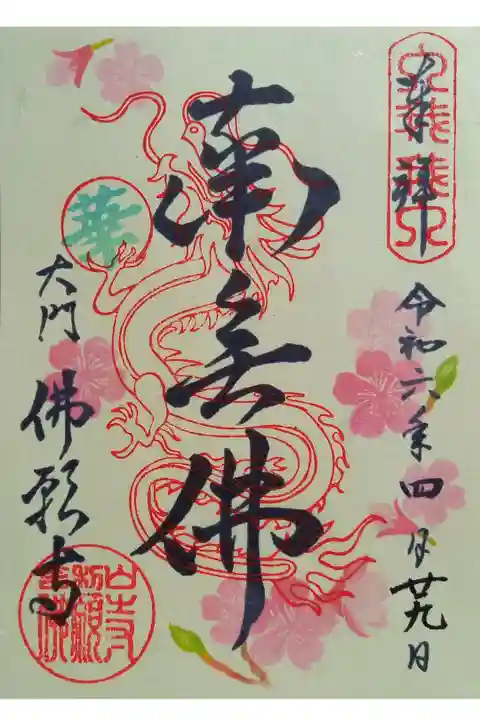 奉拝
令和六年四月廿九日
南无佛
華
大門
佛願寺